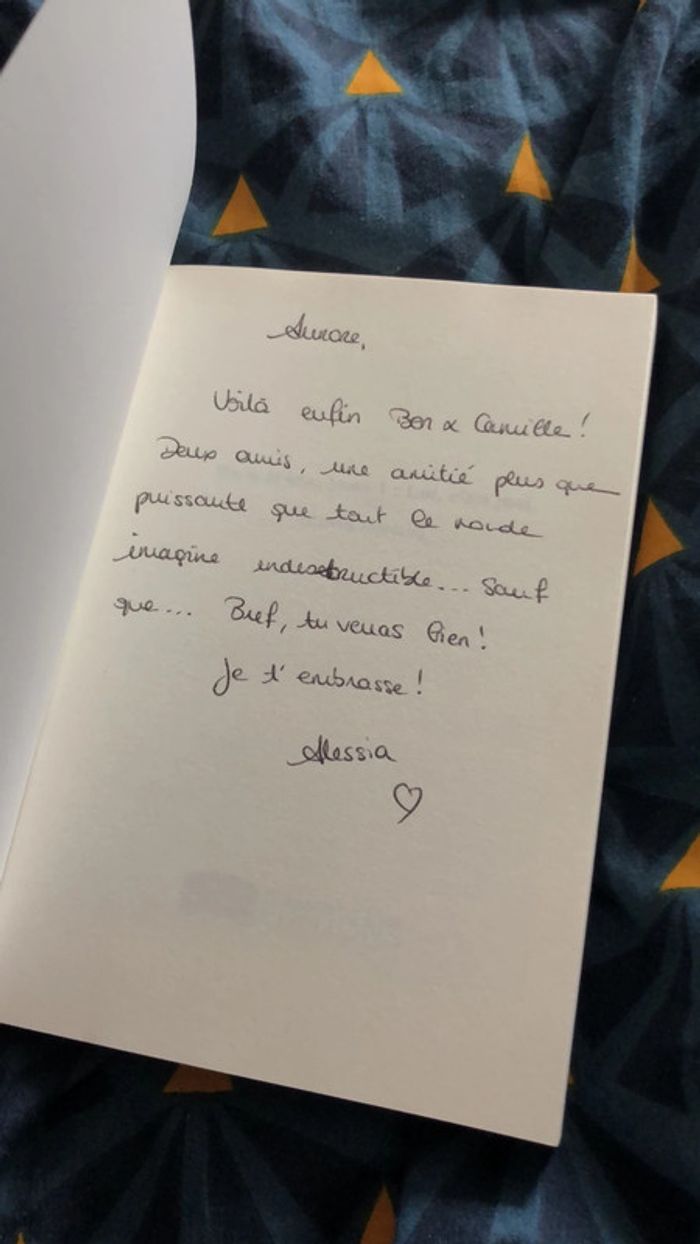 Aurore,
Voilà enfin Ben & Camille !
Deux amis, une amitié plus que
puissante que tout le monde
imagine indestructible... Sauf
que... Bref, tu verras bien !
Je t'embrasse !
Alessia